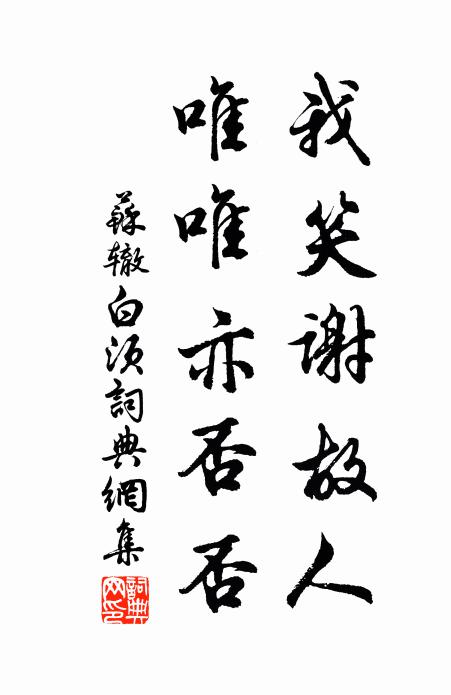 我笑谢故人
唯唯亦否否
蘇辙白须詞典網集
詞典网印